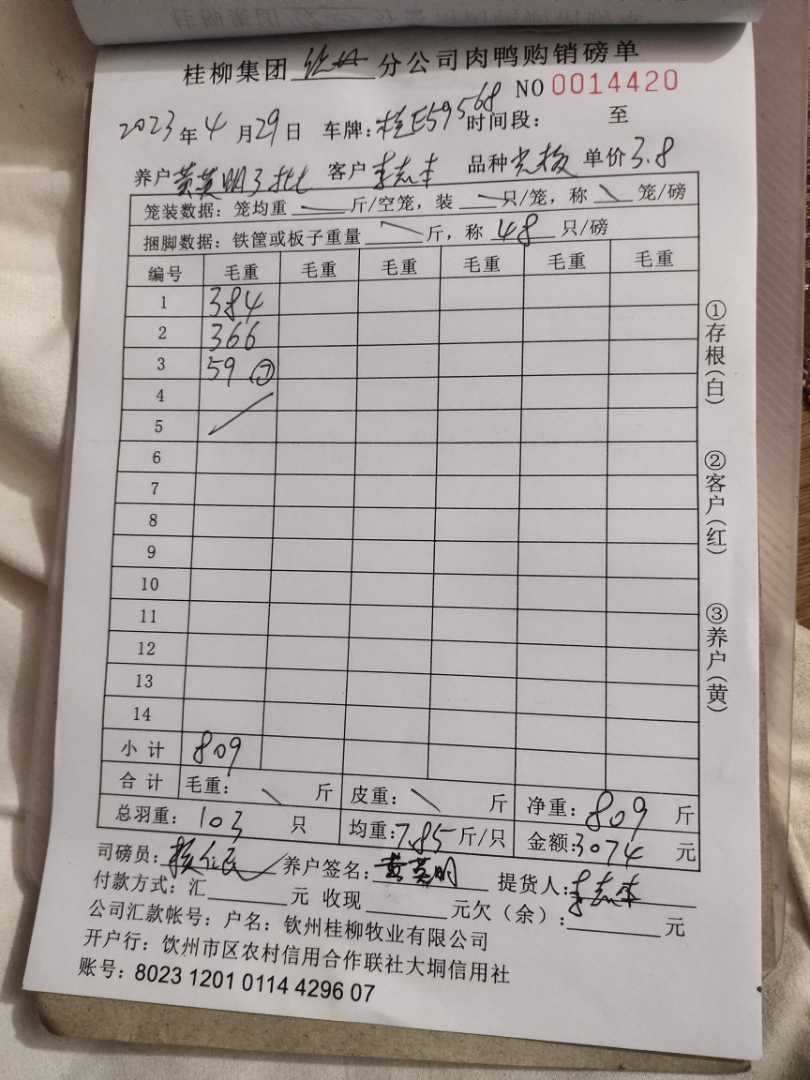 桂柳集团 分公司肉鸭购销磅单
NO 0014420
2023年4月29日 车牌:桂E59568 时间段: 至
养户黄英明3批 客户李志本 品种 单价3.8
笼装数据:笼均重 斤/空笼,装 只/笼,称 笼/磅
捆脚数据:铁筐或板子重量 斤,称 48 只/磅
编号 毛重 毛重 毛重 毛重 毛重 毛重
1 384
2 366
3 59 ⑦
4
5
6
7
8
9
10
11
12
13
14
小计 809
合计 毛重: 斤 皮重: 斤 净重:809斤
总羽重:103只 均重:7.85斤/只 金额:3074元
司磅员: 养户签名:黄英明 提货人:李志本
付款方式:汇 元 收现 元欠(余): 元
公司汇款帐号:户名:钦州桂柳牧业有限公司
开户行:饮州市区农村信用合作联社大垌信用社
账号:8023 1201 0114 4296 07
①存根(白)
②客户(红)
③养户(黄)